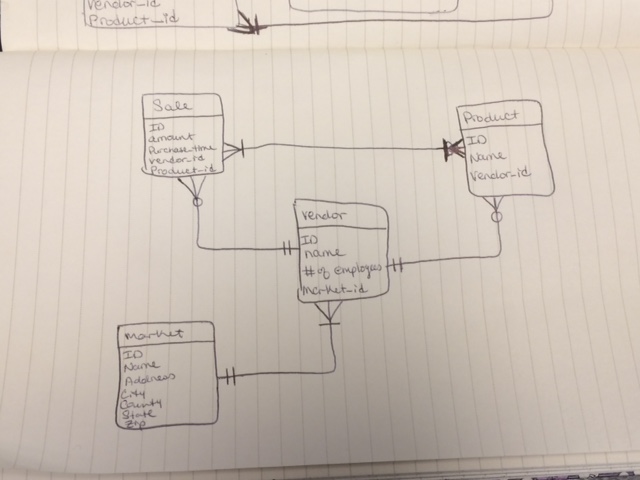 Vendor_id
Product_id
Sale
ID
amount
Purchase_time
Vendor_id
Product_id
Product
ID
Name
Vendor_id
Vendor
ID
name
# of employees
Market_id
Market
ID
Name
Address
City
County
State
Zip